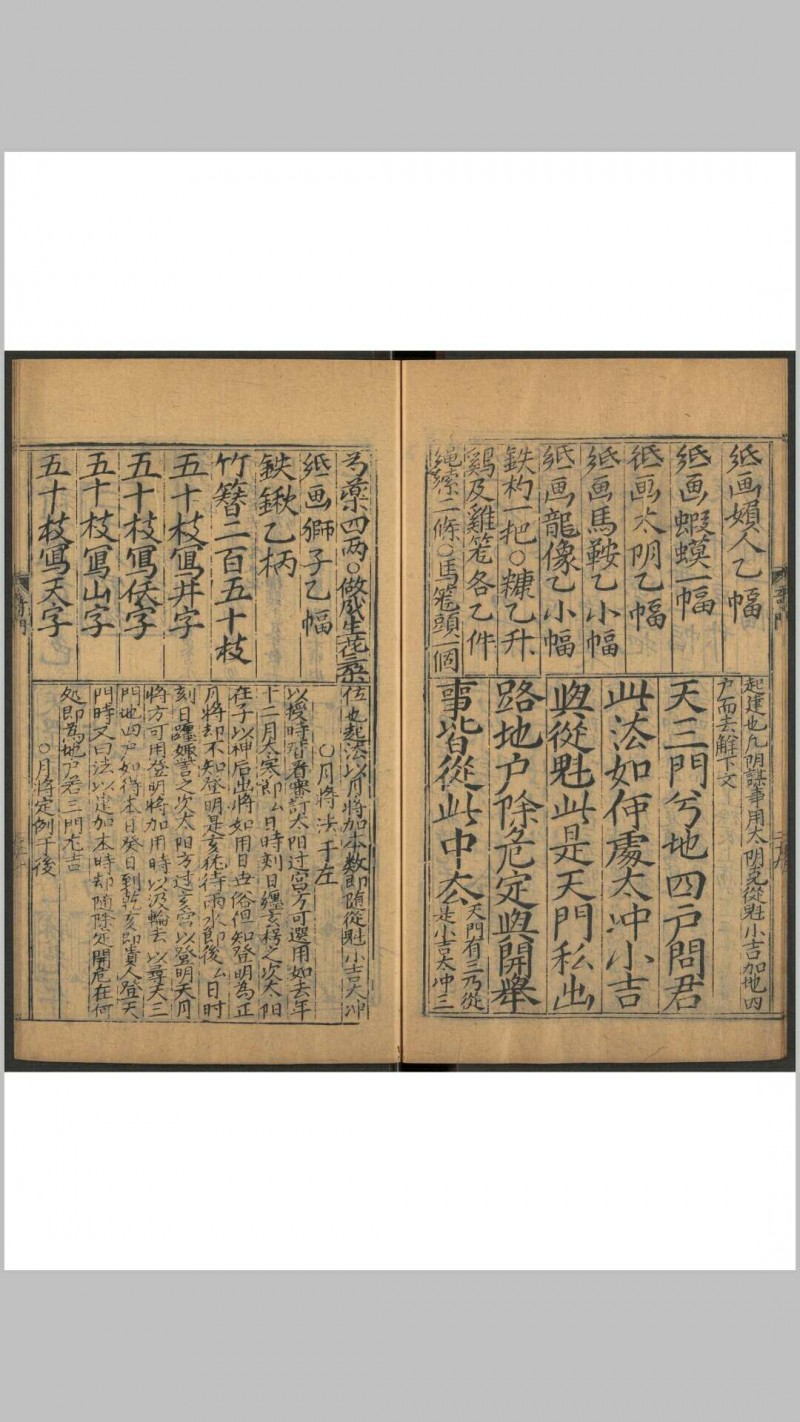 紙画嬪人乙幅
紙画蝦蟆一幅
紙画太阴乙幅
紙画馬鞍乙小幅
紙画龍像乙小幅
鉄杓一把○糠乙升
鷄及雞笼各乙件
繩索二條○馬笼頭一個
起建也凡阴謀事用太阴尅從魁小吉加地四
户而去觧下文
天三門兮地四戸問君
此法如何處太冲小吉
與從魁此是天門私出
路地户除危定與開舉
事皆從此中去天門有三乃從
是小吉太冲三
芍藥四两○做成生花三朶
紙画獅子乙幅
鉄鍬乙柄
竹簪二百五十枝
五十枝寫井字
五十枝寫伕字
五十枝寫山字
五十枝寫天字
位也起法以月將加本数即随從魁小吉太冲
○月將法于左
以授時暦者審訂太阳过宮方可選用如去年
十二月大寒即厶日時刻日纏玄枵之次太阳
在子以神后出將如用日世俗但知登明為正
月將却不知登明是亥犹待雨水即後厶日時
刻日躔娵訾之次太阳方过亥宮以登明天月
將方可用登明將加用時以汲輪去以尋天三
門地四户如待本日癸日到乾亥即貴人登天
門時又曰法以建加本時却随除定開危在何
処即爲地户若三門尤吉
○月將定例于後
竒門
竒門